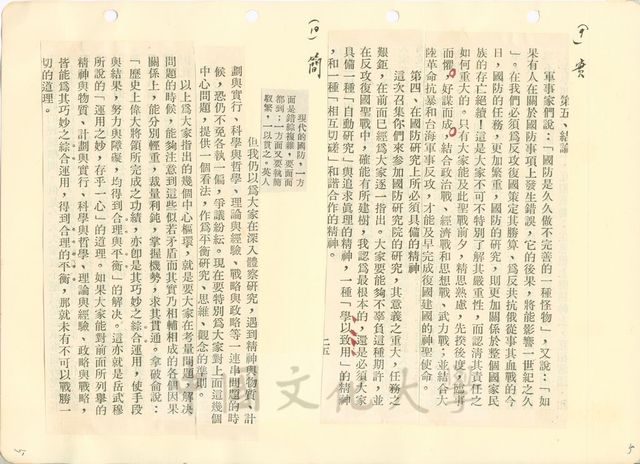 (十)實
第五、結論
軍事家們說：「國防是久久做不完善的一種怪物」，又說：「如
果有人在關於國防事項上發生錯誤，它的後果，將能影響一世紀之久
」。在我們必須爲反攻復國策定其勝算、爲反共抗俄從事其血戰的今
日，國防的任務，更加繁重，國防的研究，則更加關係於整個國家民
族的存亡絕續！這是大家不可不特別了解其嚴重性，而認清其責任之
如何重大的。只有大家能及此聖戰前夕，精思熟慮，先揆後度，臨事
而懼，好謀而成，結合政治戰、經濟戰和思想戰、武力戰；並結合大
陸革命抗暴和台灣軍事反攻，才能及早完成復國建國的神聖使命。
第四、在國防研究上所必須具備的精神
這次召集你們來參加國防研究院的研究，其意義之重大，任務之
艱鉅，在前面已經爲大家逐一指出。大家要能夠不辜負這種期許，並
在反攻復國聖戰中，確能有所建樹，我認爲最根本的，還是必須大家
具備一種「自動研究」與追求眞理的精神，一種「學以致用」的精神
，和一種「相互切磋」和諧合作的精神。
二五
(十)簡
現代的國防，一方
面是錯綜複雜，要面面
都到；一方面又要執簡
馭繁，一以貫之。英人
但我仍以爲大家在深入體察研究，遇到精神與物質、計
劃與實行、科學與哲學、理論與經驗、戰略與政略等一連串問題的時
候，恐仍不免各執一偏，爭議紛紜。現在要特別爲大家對上面這幾個
中心問題，提供一個看法，作爲平衡研究、思維、觀念的準則。
以上爲大家指出的幾個中心樞軸，就是要大家在考量問題、解決
問題的時候，能夠注意到這些似若矛盾而其實乃相輔相成的各個因果
關係上，能分別輕重，裁量利鈍，掌握機勢，求其貫通。拿破侖說：
「歷史上偉大將領所完成之功績，亦卽是其巧妙之綜合運用，使手段
與結果，努力與障礙，均得到合理與平衡」的解決。這亦就是岳武穆
所說的「運用之妙，存乎一心」的道理。如果大家能對前面所列舉的
精神與物質、計劃與實行、科學與哲學、理論與經驗、政略與戰略，
皆能爲其巧妙之綜合運用，得到合理的平衡，那就未有不可以戰勝一
切的道理。
中國文化大學